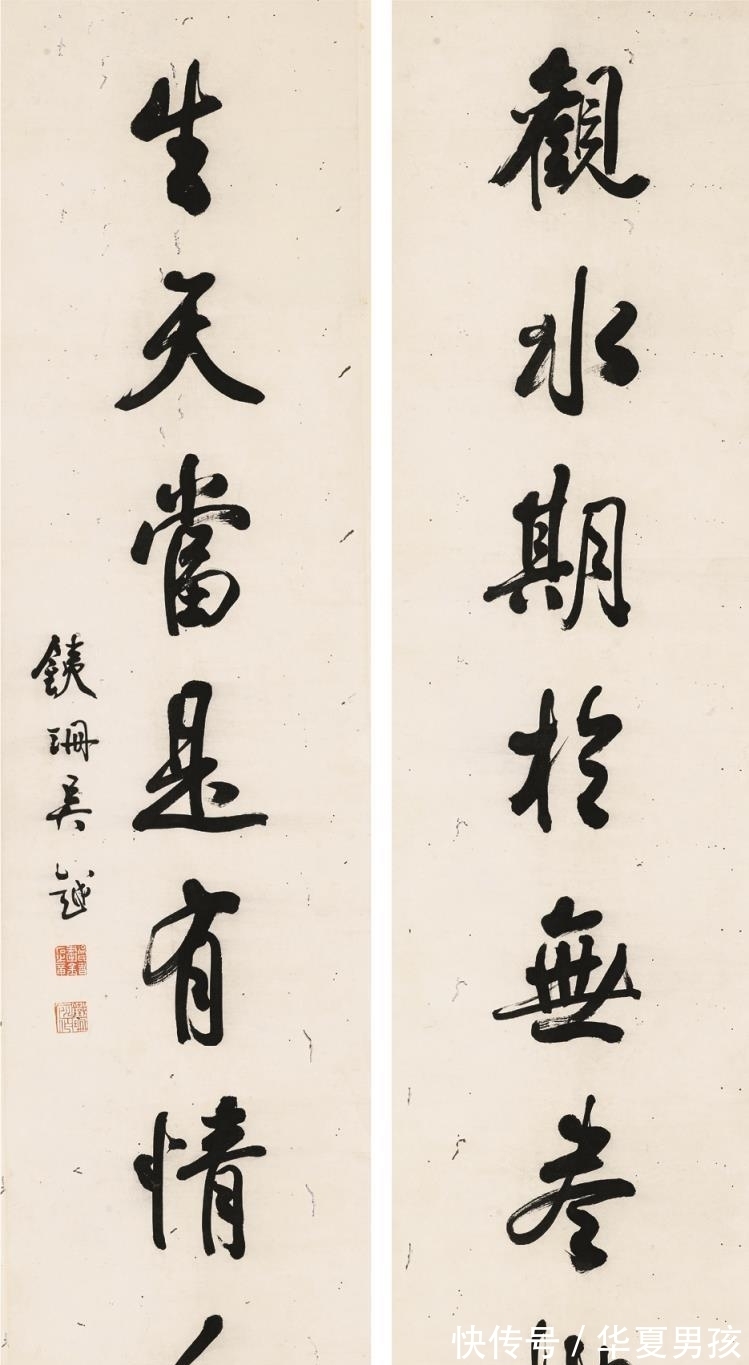 觀水期於無盡
生天當是有情
銕珊吳越
快传号 / 华夏男孩